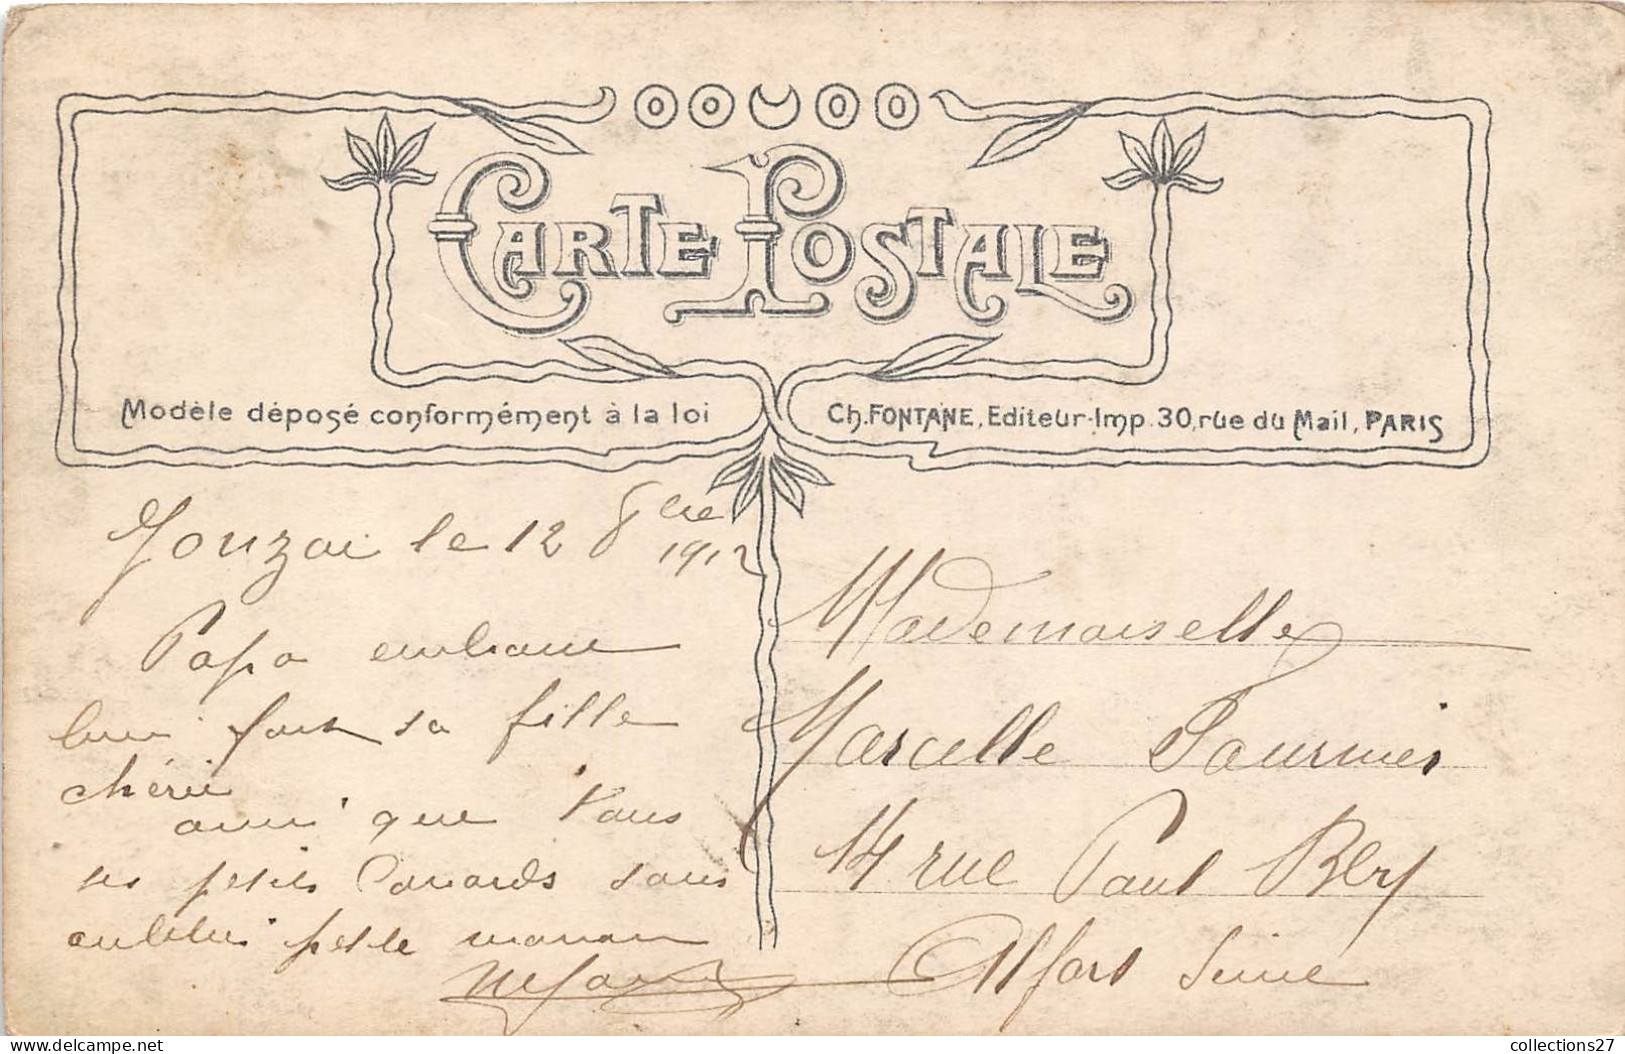 CARTE POSTALE
Modèle déposé conformément à la loi
Ch. FONTANE, Editeur-Imp. 30, rue du Mail, PARIS
le 12 8bre
1912
Papa embrasse
bien fort sa fille
chérie
ainsi que tous
ses petits Canards sans
oublier petite maman
Mademoiselle
Marcelle Fournier
14 rue Paul Bert
Alfort Seine
collections27